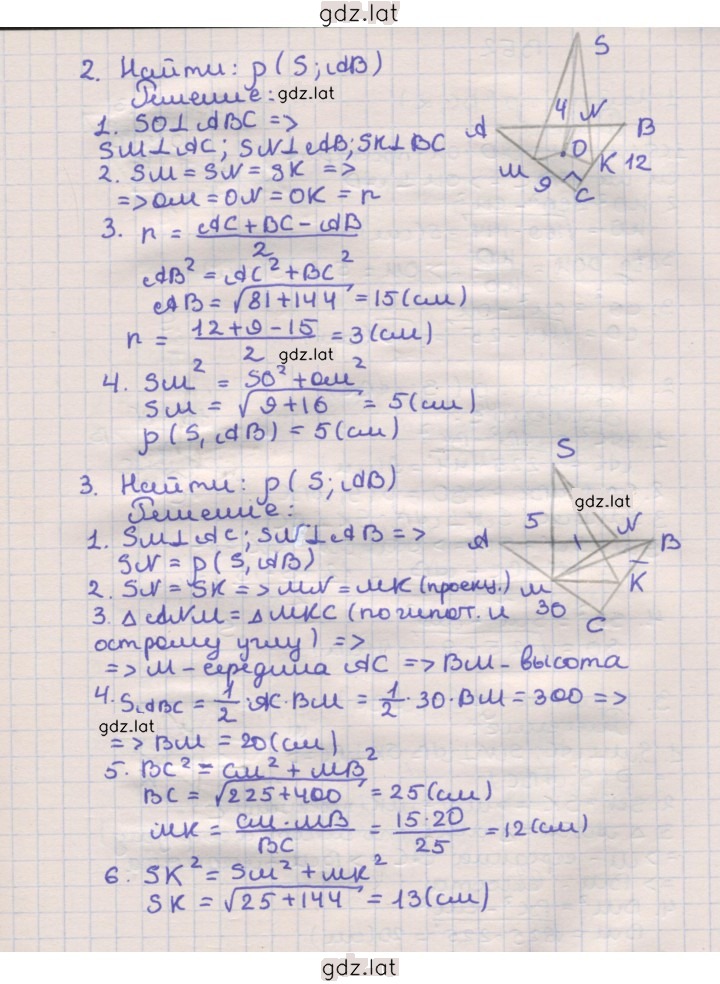 gdz.lat
2. Найти: p(S; AB)
Решение:
gdz.lat
1. SO⊥ABC =>
SM⊥AC; SN⊥AB; SK⊥BC
2. SM = SN = SK =>
=> OM = ON = OK = r
3. r = (AC + BC - AB)/2
AB² = AC² + BC²
AB = √(81 + 144) = 15 (см)
r = (12 + 9 - 15)/2 = 3 (см)
gdz.lat
4. SM² = SO² + OM²
SM = √(9 + 16) = 5 (см)
p(S, AB) = 5 (см)
S
4
N
A
B
O
M
K
12
9
C
3. Найти: p(S; AB)
Решение:
1. SM⊥AC; SN⊥AB =>
SN = p(S, AB)
2. SN = SK => MN = MK (проекц.)
3. △ANM = △MKC (по гипот. и
острому углу) =>
=> M - середина AC => BM - высота
4. SABC = 1/2 · AC · BM = 1/2 · 30 · BM = 300 =>
gdz.lat
=> BM = 20 (см)
5. BC² = CM² + MB²
BC = √(225 + 400) = 25 (см)
MK = (CM · MB)/BC = (15 · 20)/25 = 12 (см)
6. SK² = SM² + MK²
SK = √(25 + 144) = 13 (см)
S
gdz.lat
5
N
A
B
M
K
30
C
gdz.lat